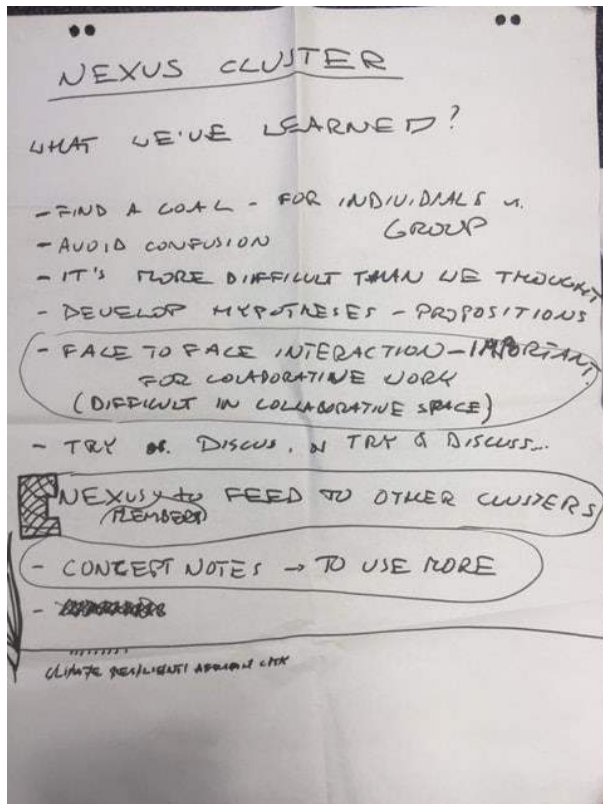 NEXUS CLUSTER
WHAT WE'VE LEARNED?
- FIND A GOAL - FOR INDIVIDIALS v.
GROUP
- AVOID CONFUSION
- IT'S MORE DIFFICULT THAN WE THOUGHT
- DEVELOP HYPOTHESES - PROPOSITIONS
- FACE TO FACE INTERACTION - IMPORTANT
FOR COLABORATIVE WORK
(DIFFICULT IN COLLABORATIVE SPACE)
- TRY & DISCUS, & TRY & DISCUSS...
NEXUS to FEED TO OTHER CLUSTERS
(MEMBERS)
- CONCEPT NOTES → TO USE MORE
-
CLIMATE RESILIENT AFRICAN